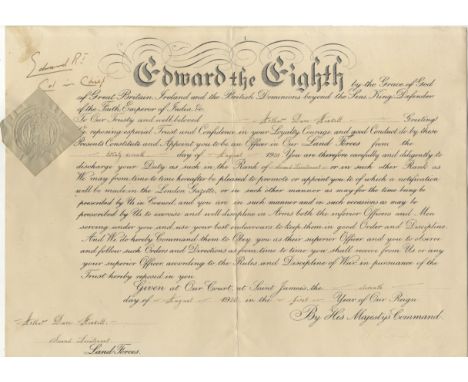 Edward R.I.
Col in Chief
Edward the Eighth by the Grace of God
of Great Britain, Ireland and the British Dominions beyond the Seas King, Defender
of the Faith, Emperor of India, &c.
To Our Trusty and well beloved Arthur Greeting!
We reposing especial Trust and Confidence in your Loyalty, Courage, and good Conduct do by these
Presents Constitute and Appoint you to be an Officer in Our Land Forces from the
day of August 1936 You are therefore carefully and diligently to
discharge your Duty as such in the Rank of Second Lieutenant or in such other Rank as
We may from time to time hereafter be pleased to promote or appoint you to of which a notification
will be made in the London Gazette, or in such other manner as may for the time being be
prescribed by Us in Council, and you are in such manner and on such occasions as may be
prescribed by Us to exercise and well discipline in Arms both the inferior Officers and Men
serving under you and use your best endeavours to keep them in good Order and Discipline.
And We do hereby Command them to Obey you as their superior Officer and you to observe
and follow such Orders and Directions as from time to time you shall receive from Us, or any
your superior Officer, according to the Rules and Discipline of War, in pursuance of the
Trust hereby reposed in you.
Given at Our Court, at Saint James's, the
day of August 1936 in the first Year of Our Reign
By His Majesty's Command.
Arthur
Second Lieutenant
Land Forces.